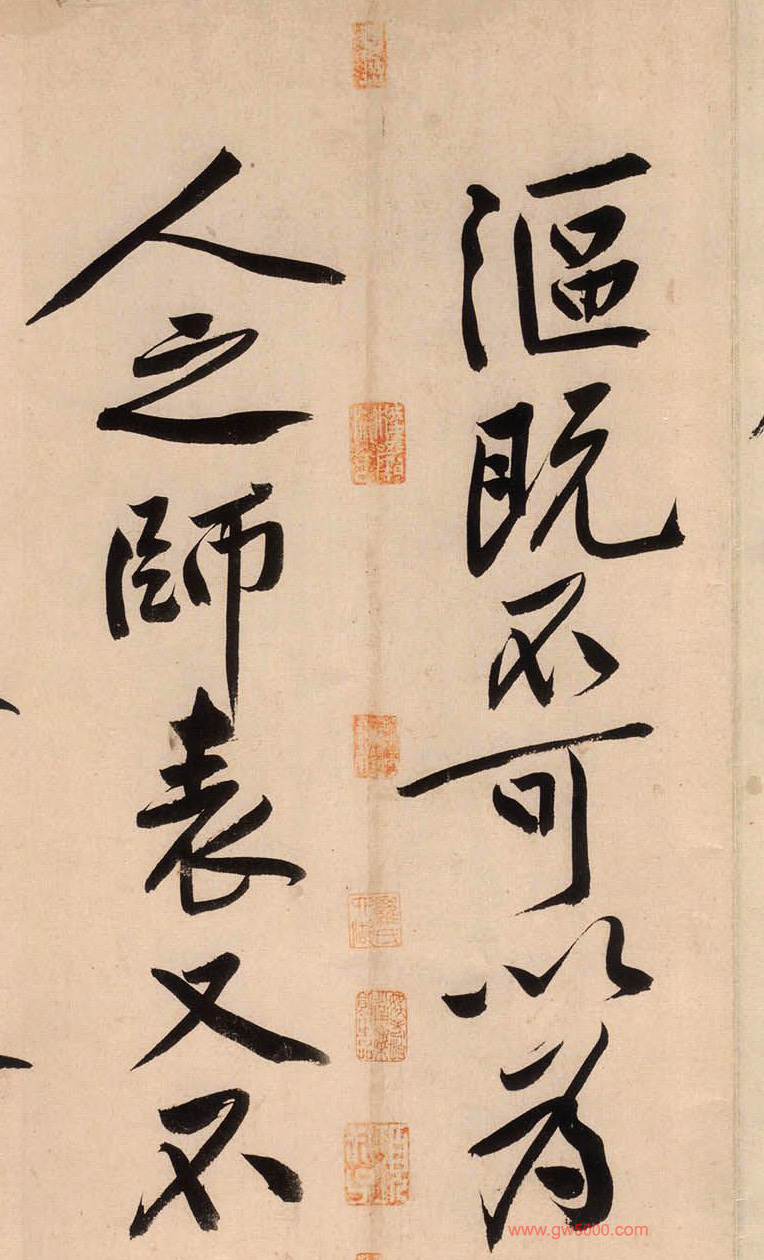 漚既不可以為
人之師表又不
www.gw5000.com